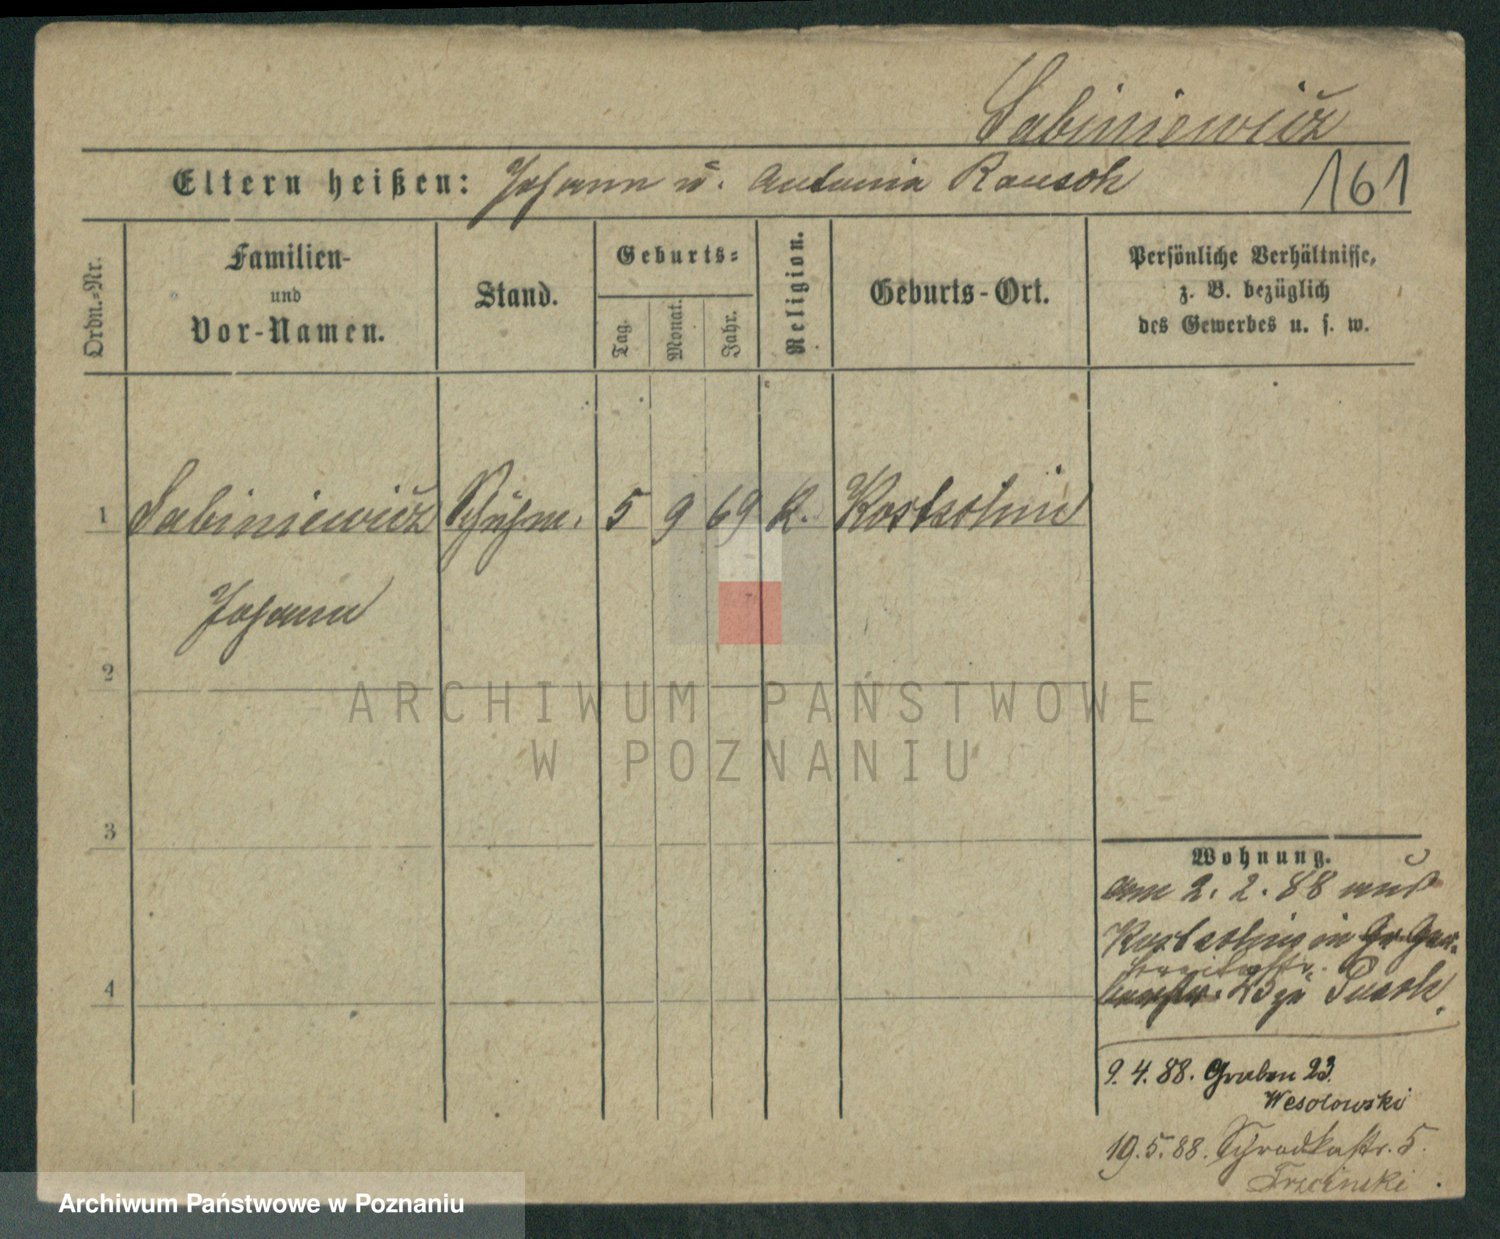 Sabiniewicz
Eltern heißen: Johann u. Antonia Rausch
161
Ordn.-Nr.
Familien-
und
Vor-Namen.
Stand.
Geburts-
Tag.
Monat.
Jahr.
Religion.
Geburts-Ort.
Persönliche Verhältnisse,
z. B. bezüglich
des Gewerbes u. s. w.
1 Sabiniewicz Schuhm. 5 9 69 K. Kostschin
Johann
2
3
4
Wohnung.
am 2. 2. 88 aus
Kostschin in Gr. Ger-
23 zu
9. 4. 88. Graben 23.
Wesolowski
19. 5. 88. Schrodkastr. 5.
Trzcinski
ARCHIWUM PAŃSTWOWE
W POZNANIU
Archiwum Państwowe w Poznaniu